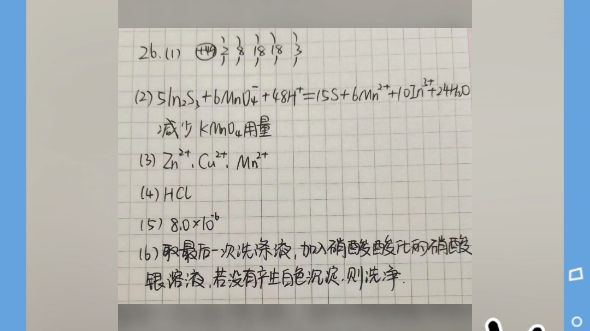 26.(1) +49 2 8 18 18 3
(2) 5In₂S₃+6MnO₄⁻+48H⁺=15S+6Mn²⁺+10In³⁺+24H₂O
减少KMnO₄用量
(3) Zn²⁺、Cu²⁺、Mn²⁺
(4) HCl
(5) 8.0×10⁻⁶
(6) 取最后一次洗涤液,加入硝酸酸化的硝酸
银溶液,若没有产生白色沉淀,则洗净.